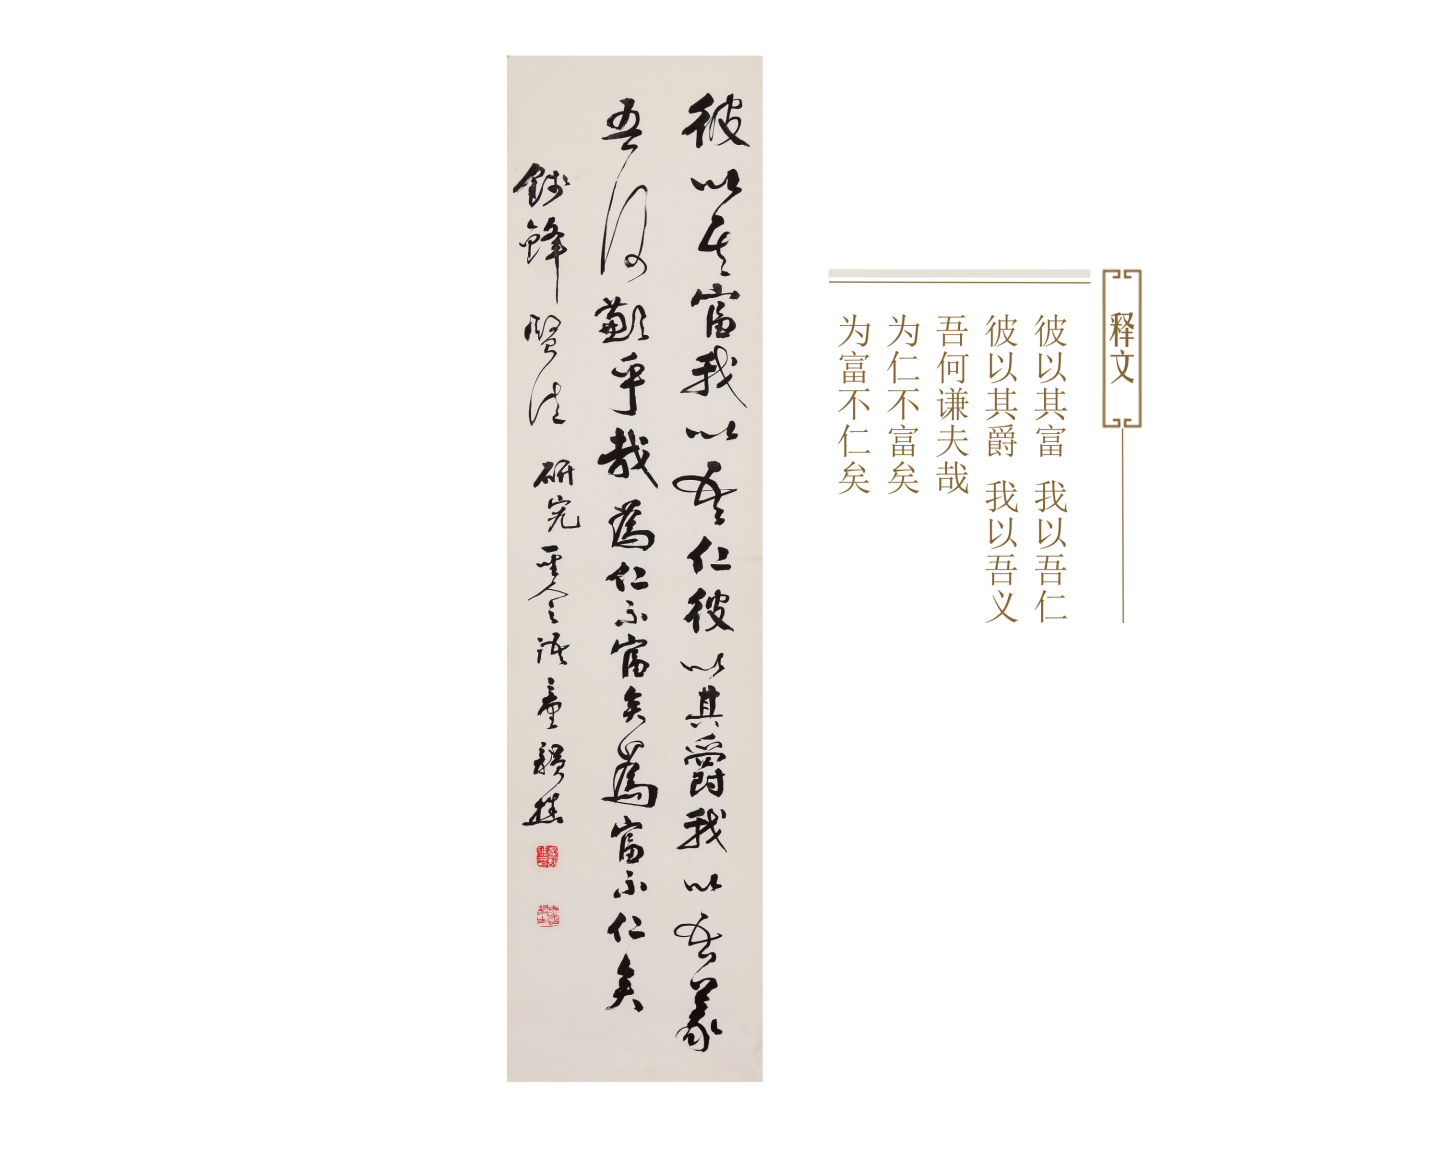 释文
彼以其富 我以吾仁
彼以其爵 我以吾义
吾何谦夫哉
为仁不富矣
为富不仁矣
彼以其富我以吾仁彼以其爵我以吾義
吾何歉乎哉為仁不富矣為富不仁矣
鋒賢 研究聖人之語童